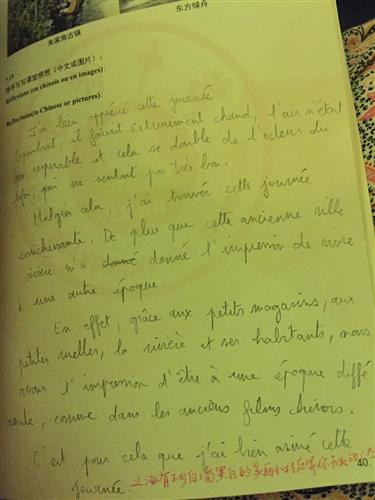 朱家角古镇
东方绿舟
7.15
随手写写课堂感想（中文或图片）：
Réflexions (en chinois ou en images) :
Reflections(in Chinese or pictures) :
J'ai bien apprécié cette journée.
Cependant, il faisait extrêmement chaud, l'air n'était
pas respirable et cela se double de l'odeur du
tofu, qui ne sentait pas très bon.
Malgrès cela, j'ai trouvée cette journée
enrichissante. De plus que cette ancienne ville
rivière m'a donné donné l'impression de vivre
à une autre époque.
En effet, grâce aux petits magasins, aux
petites ruelles, la rivière et ses habitants, nous
avons l'impression d'être à une époque diffé
rente, comme dans les anciens films chinois.
C'est pour cela que j'ai bien aimé cette
40.
journée 上海有不可自 的美丽小村庄等你去